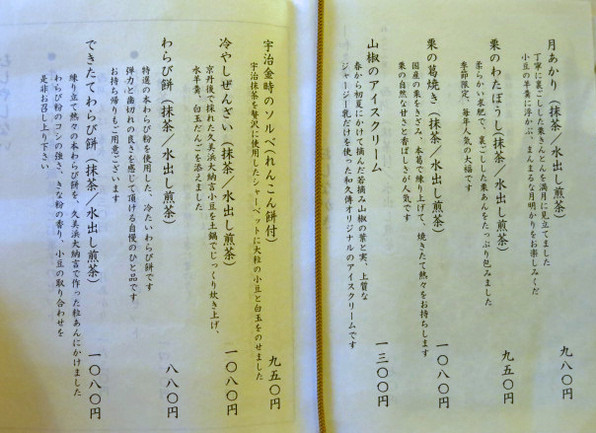 月あかり（抹茶／水出し煎茶）
丁寧に裏ごしした栗きんとんを満月に見立てました
小豆の羊羹に浮かぶ、まんまるな月明かりをお楽しみくだ
九八〇円
栗のわたぼうし（抹茶／水出し煎茶）
柔らかい求肥で、裏ごしした栗あんをたっぷり包みました
季節限定、毎年人気の大福です
九五〇円
栗の葛焼き（抹茶／水出し煎茶）
国産の栗をきざみ、本葛で練り上げて、焼きたて熱々をお持ちします
栗の自然な甘さと香ばしさが人気です
一〇八〇円
山椒のアイスクリーム
春から初夏にかけて摘んだ若摘み山椒の葉と実、上質な
ジャージー乳だけを使った和久傳オリジナルのアイスクリームです
一三〇〇円
宇治金時のソルベ（れんこん餅付）
宇治抹茶を贅沢に使用したシャーベットに大粒の小豆と白玉をのせました
九五〇円
冷やしぜんざい（抹茶／水出し煎茶）
京丹後で採れた久美浜大納言小豆を土鍋でじっくり炊き上げ、
水羊羹、白玉だんごを添えました
一〇八〇円
わらび餅（抹茶／水出し煎茶）
特選の本わらび粉を使用した、冷たいわらび餅です
弾力と歯切れの良さを感じて頂ける自慢のひと品です
お持ち帰りもご用意ございます
八八〇円
できたてわらび餅（抹茶／水出し煎茶）
練り立て熱々の本わらび餅を、久美浜大納言で作った粒あんにかけました
わらび粉のコシの強さ、きな粉の香り、小豆の取り合わせを
是非お召し上り下さい
一〇八〇円